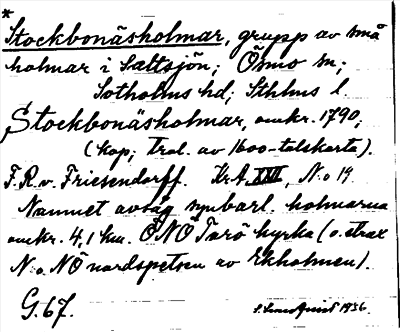 *
Stockbonäsholmar, grupp av små
holmar i Saltsjön; Ösmo sn;
Sotholms hd; Sthlms l.
Stockbonäsholmar, omkr. 1790;
(kop; Tral. av 1600-talskarta).
F.R.v. Friesendorff. Kr.A. XVII, N:o 19.
Namnet avsåg synbarl. holmarna
omkr. 4,1 km. ÖNÖ Torö kyrka (o. strax
N. o. NÖ nordspetsen av Ekholmen).
G. 67.
1936.